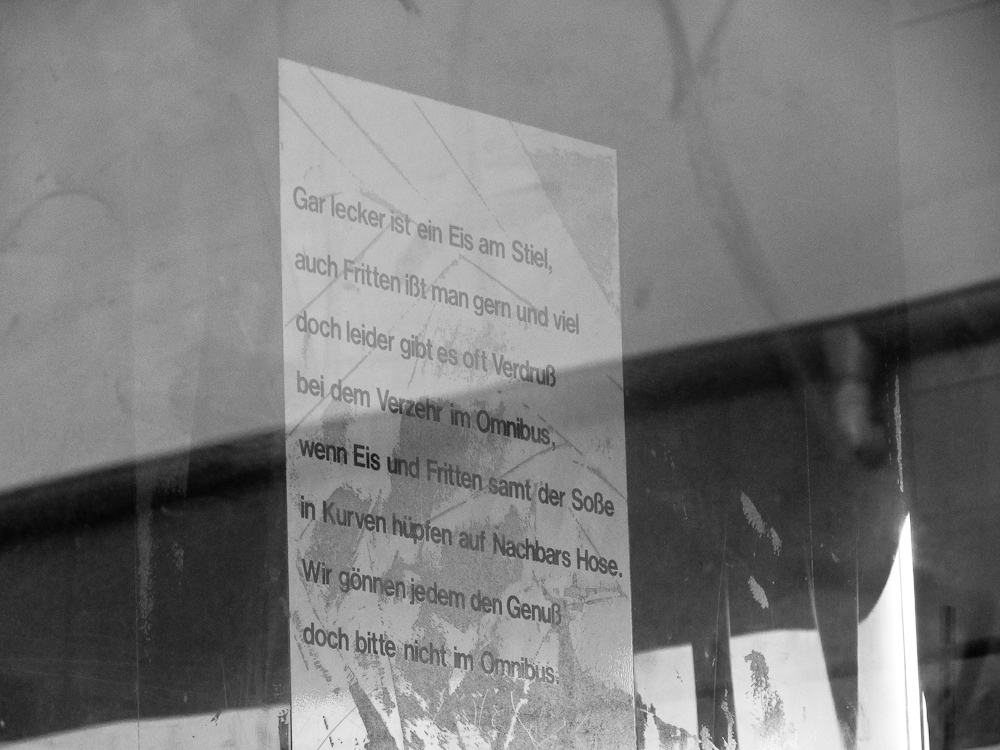 Gar lecker ist ein Eis am Stiel,
auch Fritten ißt man gern und viel
doch leider gibt es oft Verdruß
bei dem Verzehr im Omnibus,
wenn Eis und Fritten samt der Soße
in Kurven hüpfen auf Nachbars Hose.
Wir gönnen jedem den Genuß
doch bitte nicht im Omnibus.